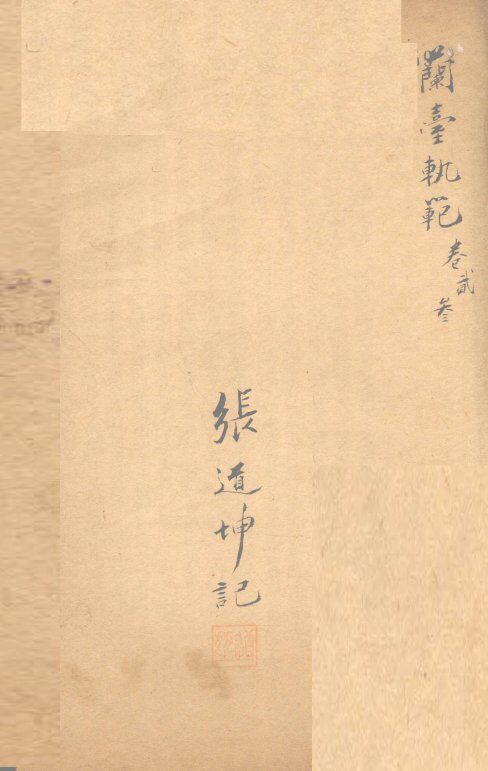 蘭臺軌範卷貳叁
張道坤記